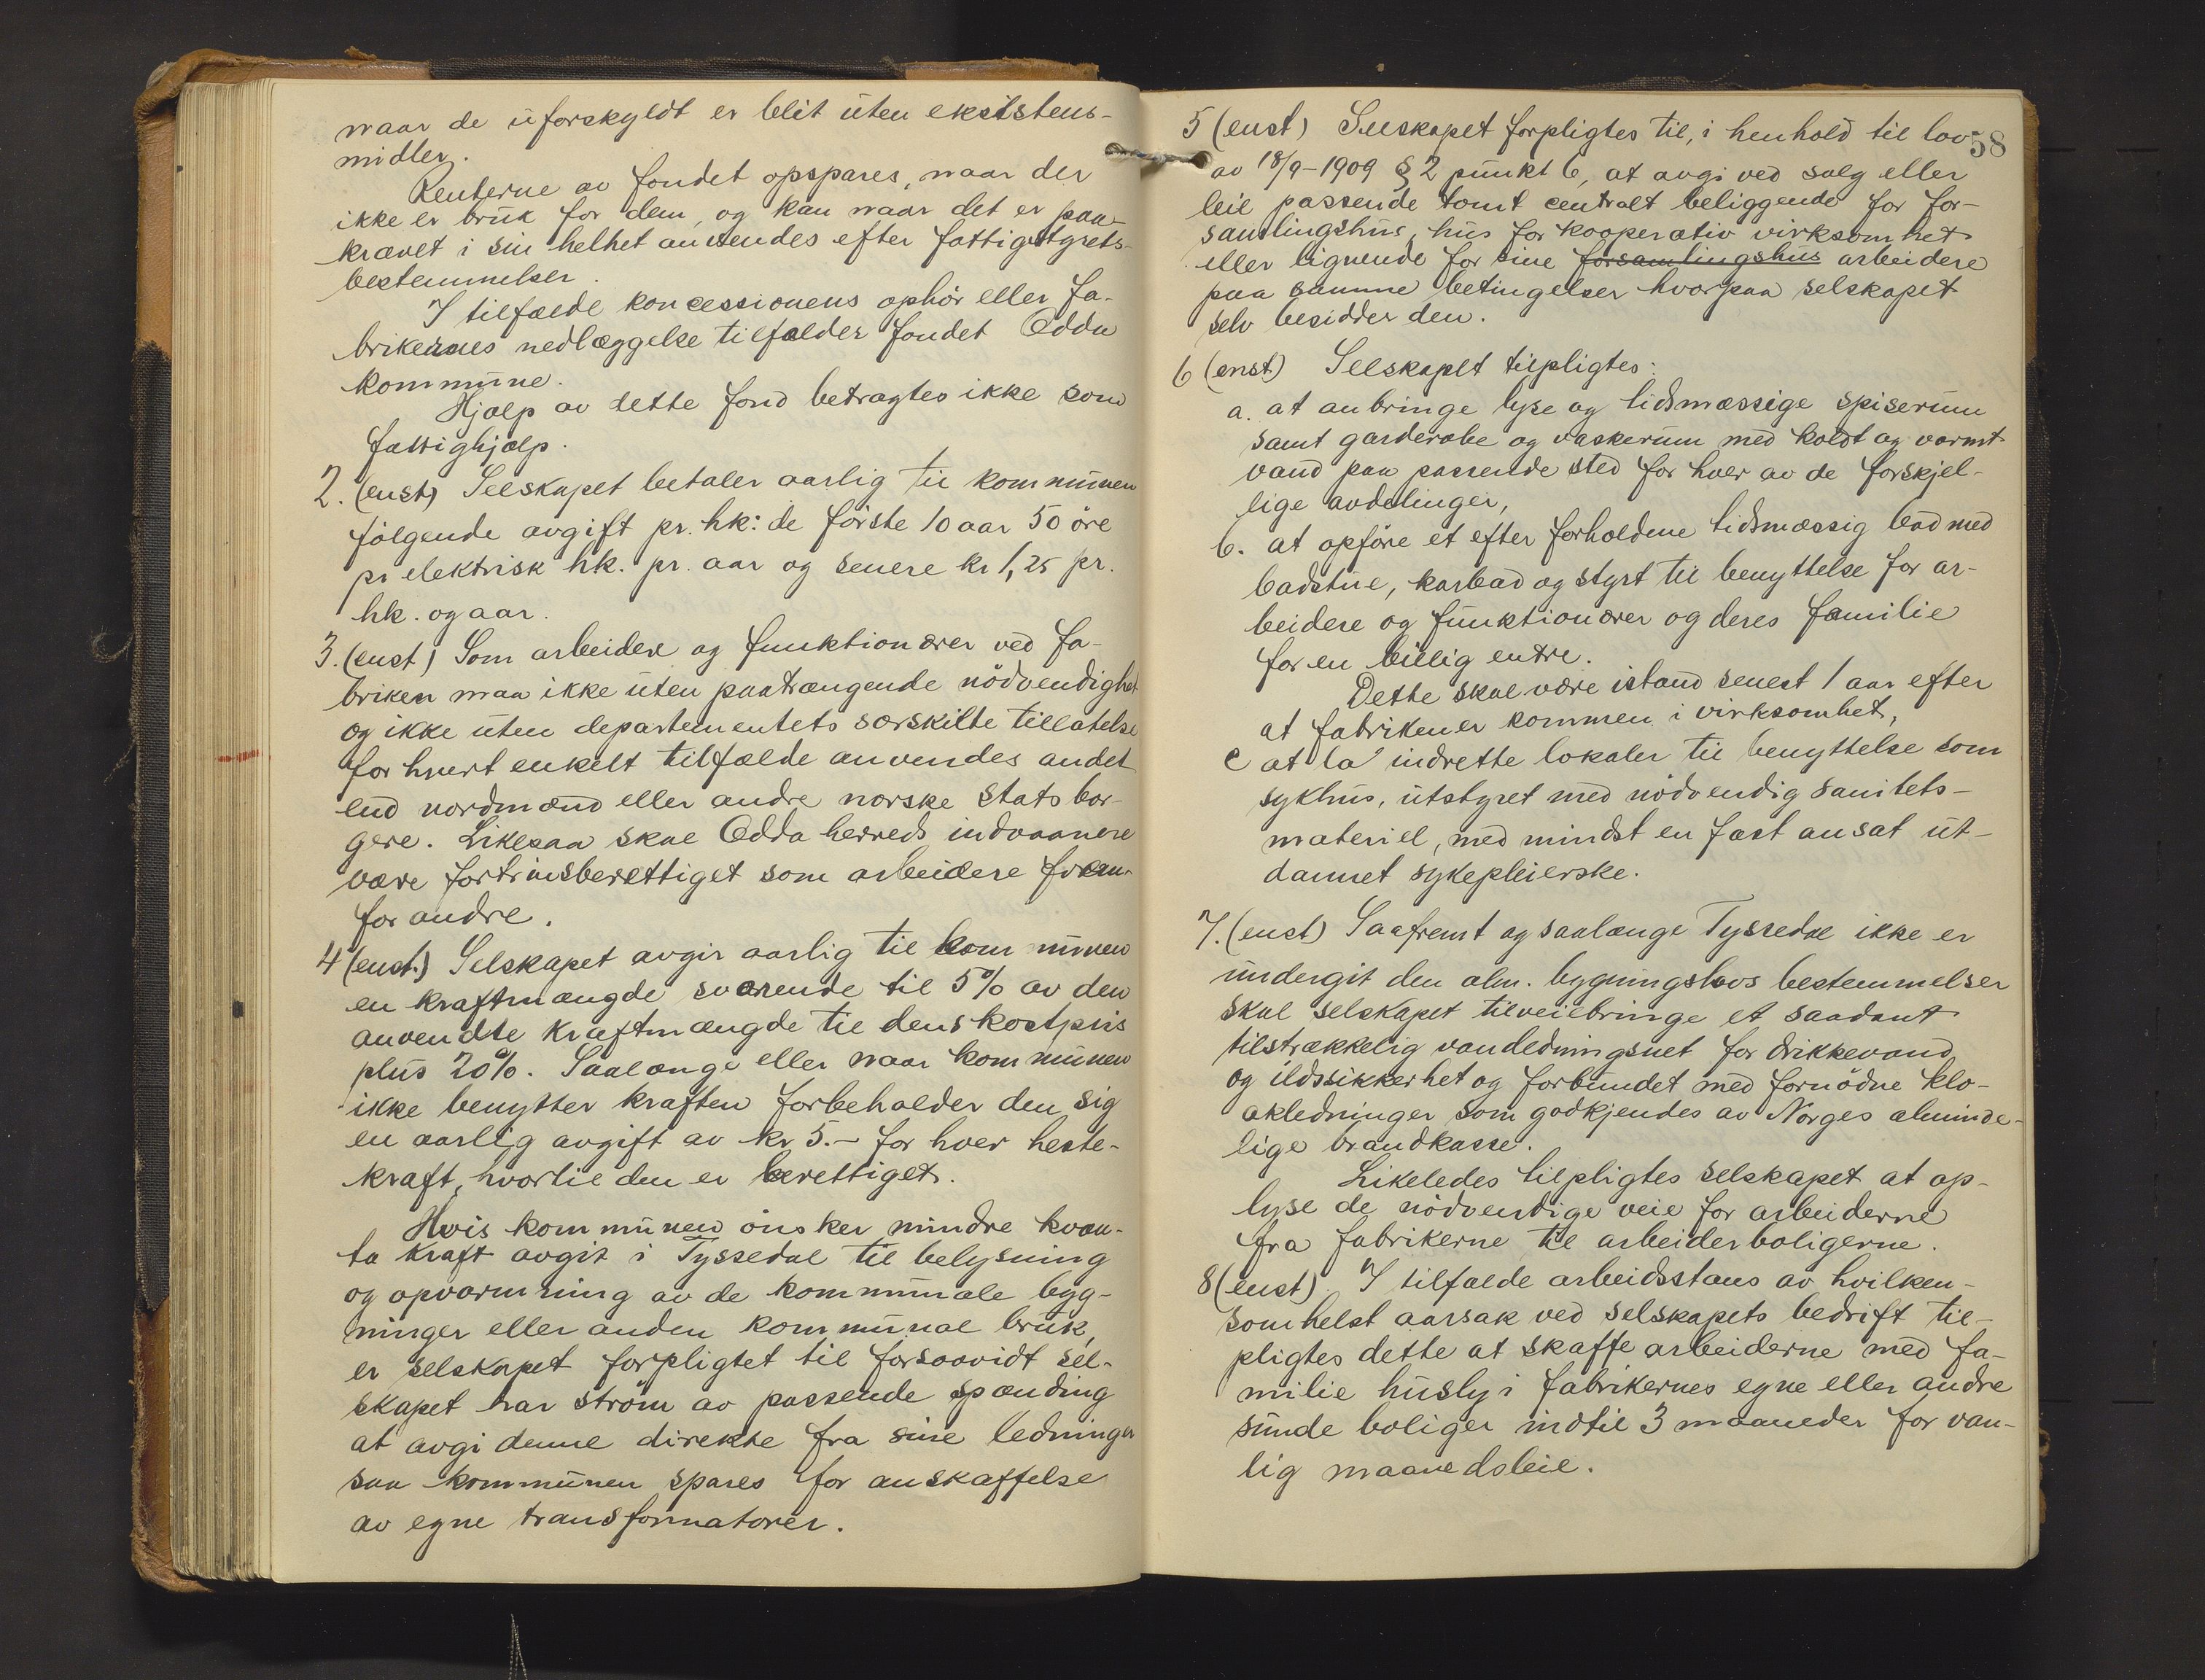 naar de uforskyldt er blit uten eksistens-
midler.
Renterne av fondet opspares, naar der
ikke er bruk for dem, og kan naar det er paa-
krævet i sin helhet anvendes efter fattigstyrets
bestemmelser.
I tilfælde koncessionens ophör eller fa-
brikernes nedlæggelse tilfalder fondet Odda
kommune.
Hjælp av dette fond betragtes ikke som
fattighjælp.
2. (enst) Selskapet betaler aarlig til kommunen
fölgende avgift pr. hk: de förste 10 aar 50 öre
pr elektrisk hk. pr. aar og senere kr 1,25 pr.
hk. og aar.
3. (enst) Som arbeidere og funktionærer ved fa-
briken maa ikke uten paatrængende nödvendighet
og ikke uten departementets særskilte tillatelse
for hvert enkelt tilfælde anvendes andet
end nordmænd eller andre norske statsbor-
gere. Likesaa skal Odda herreds indvaanere
være fortrinsberettiget som arbeidere frem-
for andre.
4 (enst.) Selskapet avgir aarlig til kommunen
en kraftmængde svarende til 5% av den
anvendte kraftmængde til dens kostpris
plus 20%. Saalænge eller naar kommunen
ikke benytter kraften forbeholder den sig
en aarlig avgift av kr 5.- for hver heste-
kraft, hvortil den er berettiget.
Hvis kommunen önsker mindre kvan-
ta kraft avgit i Tyssedal til belysning
og opvarmning av de kommunale byg-
ninger eller anden kommunal bruk,
er selskapet forpligtet til forsaavidt sel-
skapet har ström av passende spænding
at avgi denne direkte fra sine ledninger
saa kommunen spares for anskaffelse
av egne transformatorer.
58
5 (enst) Selskapet forpligtes til, i henhold til lov
av 18/9-1909 § 2 punkt 6, at avgi ved salg eller
leie passende tomt centralt beliggende for for-
samlingshus, hus for kooperativ virksomhet
eller lignende for sine forsamlingshus arbeidere
paa samme betingelser hvorpaa selskapet
selv besidder den.
6 (enst) Selskapet tilpligtes:
a. at anbringe lyse og tidsmæssige spiserum
samt garderobe og vaskerum med koldt og varmt
vand paa passende sted for hver av de forskjel-
lige avdelinger,
b. at opföre et efter forholdene tidsmæssig bad med
badstue, karbad og styrt til benyttelse for ar-
beidere og funktionærer og deres familie
for en billig entre.
Dette skal være istand senest 1 aar efter
at fabriken er kommen i virksomhet,
c at la indrette lokaler til benyttelse som
sykhus, utstyret med nödvendig sanitets-
materiel, med mindst en fast ansat ut-
dannet sykepleierske.
7. (enst) Saafremt og saalænge Tyssedal ikke er
undergit den alm. bygningslovs bestemmelser
skal selskapet tilveiebringe et saadant
tilstrækkelig vandledningsnet for drikkevand
og ildssikkerhet og forbundet med fornödne klo-
akledninger som godkjendes av Norges alminde-
lige brandkasse.
Likeledes tilpligtes selskapet at op-
lyse de nödvendige veie for arbeiderne
fra fabrikerne til arbeiderboligerne.
8 (enst). I tilfælde arbeidsstans av hvilken-
somhelst aarsak ved selskapets bedrift til-
pligtes dette at skaffe arbeiderne med fa-
milie husly i fabrikernes egne eller andre
sunde boliger indtil 3 maaneder for van-
lig maanedsleie.